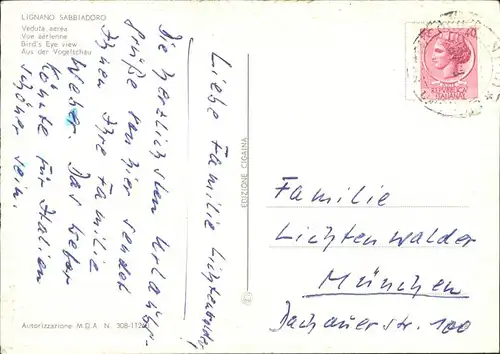 LIGNANO SABBIADORO
Veduta aerea
Vue aérienne
Bird's Eye view
Aus der Vogelschau
Liebe Familie Lichtenwalder,
Die herzlichsten Urlaubs-
grüße von hier sendet
Ihnen Ihre Familie
Weber. Das Wetter
könnte für Italien
schöner sein.
EDIZIONE CIGAINA
40
REPUBBLICA
ITALIANA
Familie
Lichtenwalder
München
Dachauerstr. 100
Autorizzazione M.D.A. N. 308-112